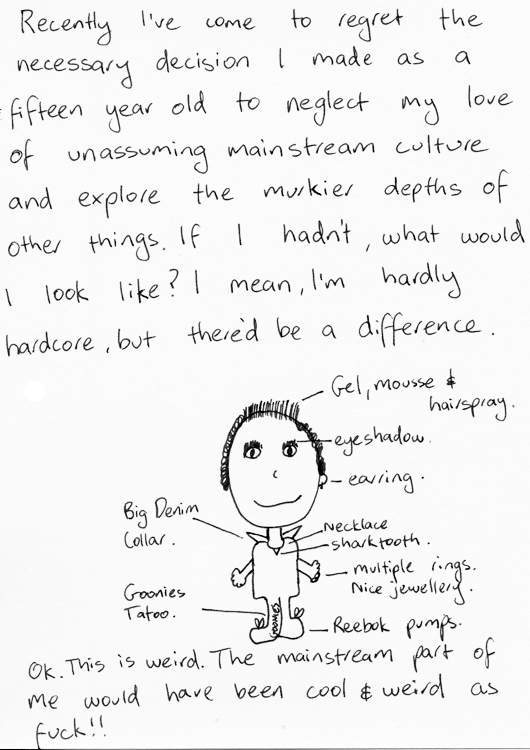 Recently I've come to regret the
necessary decision I made as a
fifteen year old to neglect my love
of unassuming mainstream culture
and explore the murkier depths of
other things. If I hadn't, what would
I look like? I mean, I'm hardly
hardcore, but there'd be a difference.
Gel, mousse &
hairspray.
eyeshadow.
earring.
Big Denim
Collar.
Necklace
sharktooth.
multiple rings.
Nice jewellery.
Goonies
Tatoo.
GOONIES
Reebok pumps.
Ok. This is weird. The mainstream part of
me would have been cool & weird as
fuck!!